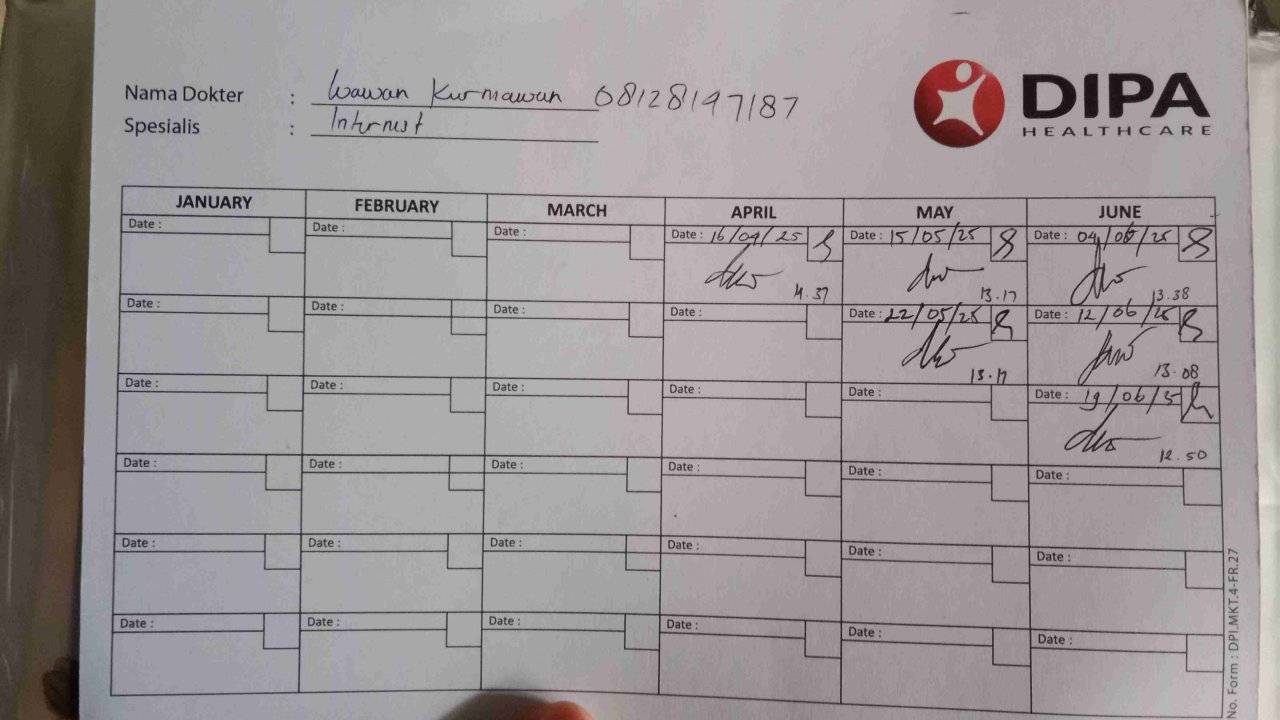 DIPA
HEALTHCARE
Nama Dokter : Wawan Kurniawan 08128197187
Spesialis : Internist
JANUARY FEBRUARY MARCH APRIL MAY JUNE
Date : Date : Date : Date : 16/04/25 Date : 15/05/25 Date : 04/06/25
13.17 13.38
Date : Date : Date : Date : Date : 22/05/25 Date : 12/06/25
13.17 13.08
Date : Date : Date : Date : Date : Date : 19/06/25
12.50
Date : Date : Date : Date : Date : Date :
Date : Date : Date : Date : Date : Date :
Date : Date : Date : Date : Date : Date :
No. Form : DPI.MKT.4-FR.27